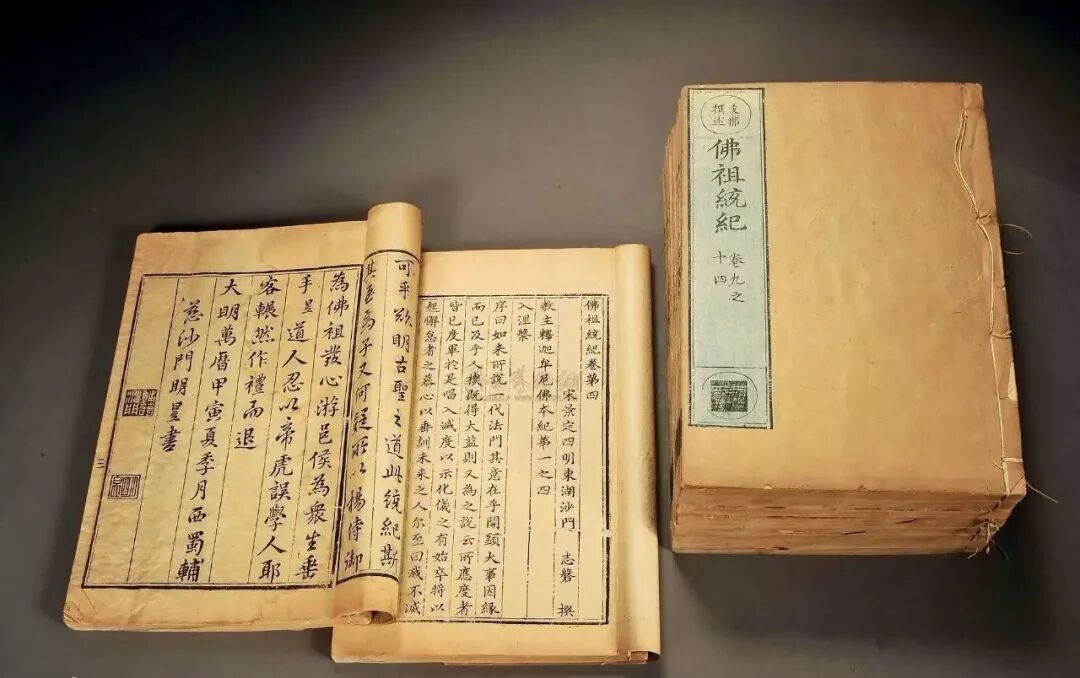 支那
撰述
佛祖統紀
卷九之
十四
佛祖統紀卷第四
宋景定四明東湖沙門 志磐 撰
教主釋迦牟尼佛本紀第一之四
入涅槃
序曰如來所說一代法門其意在乎開顯大事因緣
而已及乎人機既得大益則又為之說云所應度者
皆已度畢於是唱入滅度以示化儀之有始卒將以
起懈怠者之慕心以垂訓未來之人尔至曰我不滅
可乎欲明古聖之道此統紀斯
其為子又何疑所以楊侍御
為佛祖發心游邑侯為衆生垂
手昱道人忍以帝虎誤學人耶
客囅然作禮而退
大明萬曆甲寅夏季月西蜀輔
慈沙門明昱書
三